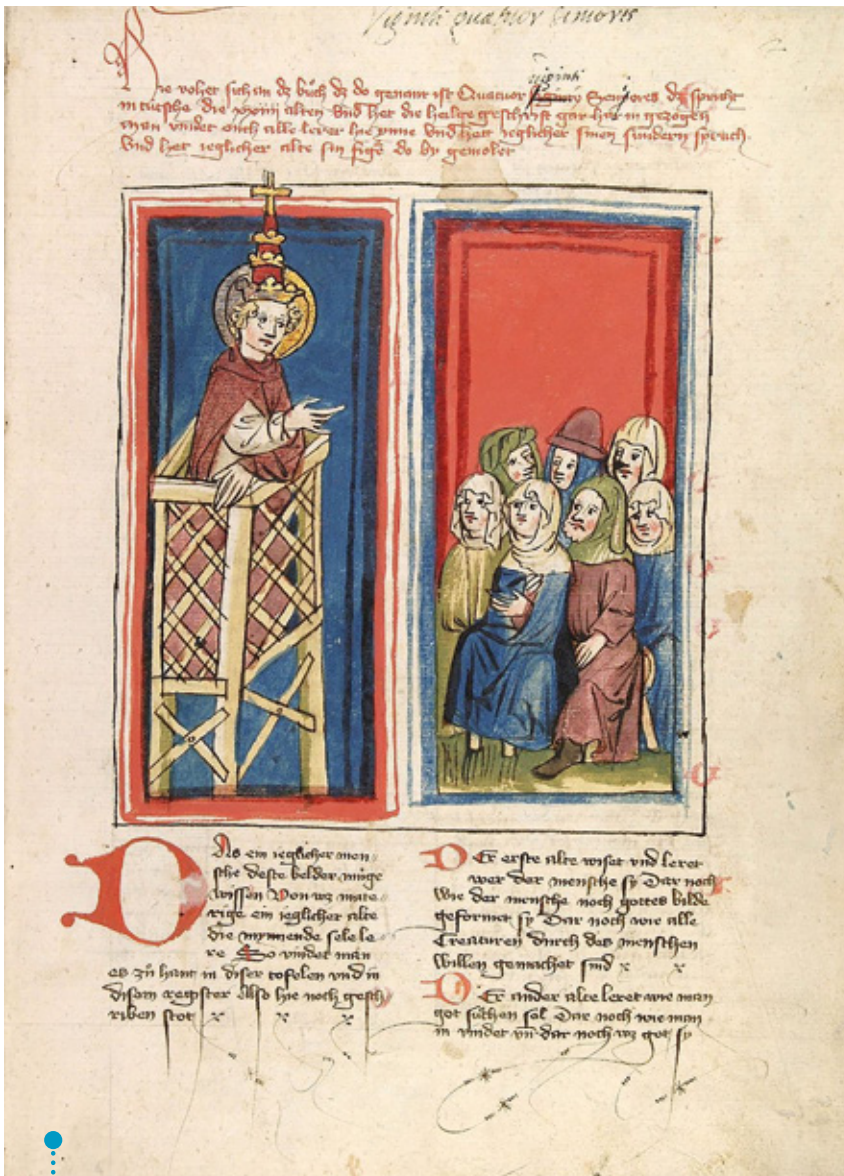 Viginti quatuor seniores
Hie vohet sich an dz bůch dz do genant ist Quatuor viginti Senyores dz spricht
in tutsche die xxiiii alten Vnd het die heilige geschrift gar har in gezogen
man vindet ouch alle lerer hie ynne Vnd hett ieglicher sinen sundern spruch
Vnd het ieglicher alte sin figē do by gemolet
Das ein ieglicher men
sche deste belder muge
wissen Von wz mate
rige ein ieglicher alte
die mynnende sele le
re So vindet man
es zů hant in diser tofelen vnd in
disem register Also hie noch gesch
riben stot
Der erste alte wiset vnd leret
wer der mensche sy Dar noch
wie der mensche noch gottes bilde
geformet sy Dar noch wie alle
Creaturen durch des menschen
willen gemachet sind
Der ander alte leret wie man
got sůchen sol Dar noch wie man
in vindet vn̄ dar noch wz got sy